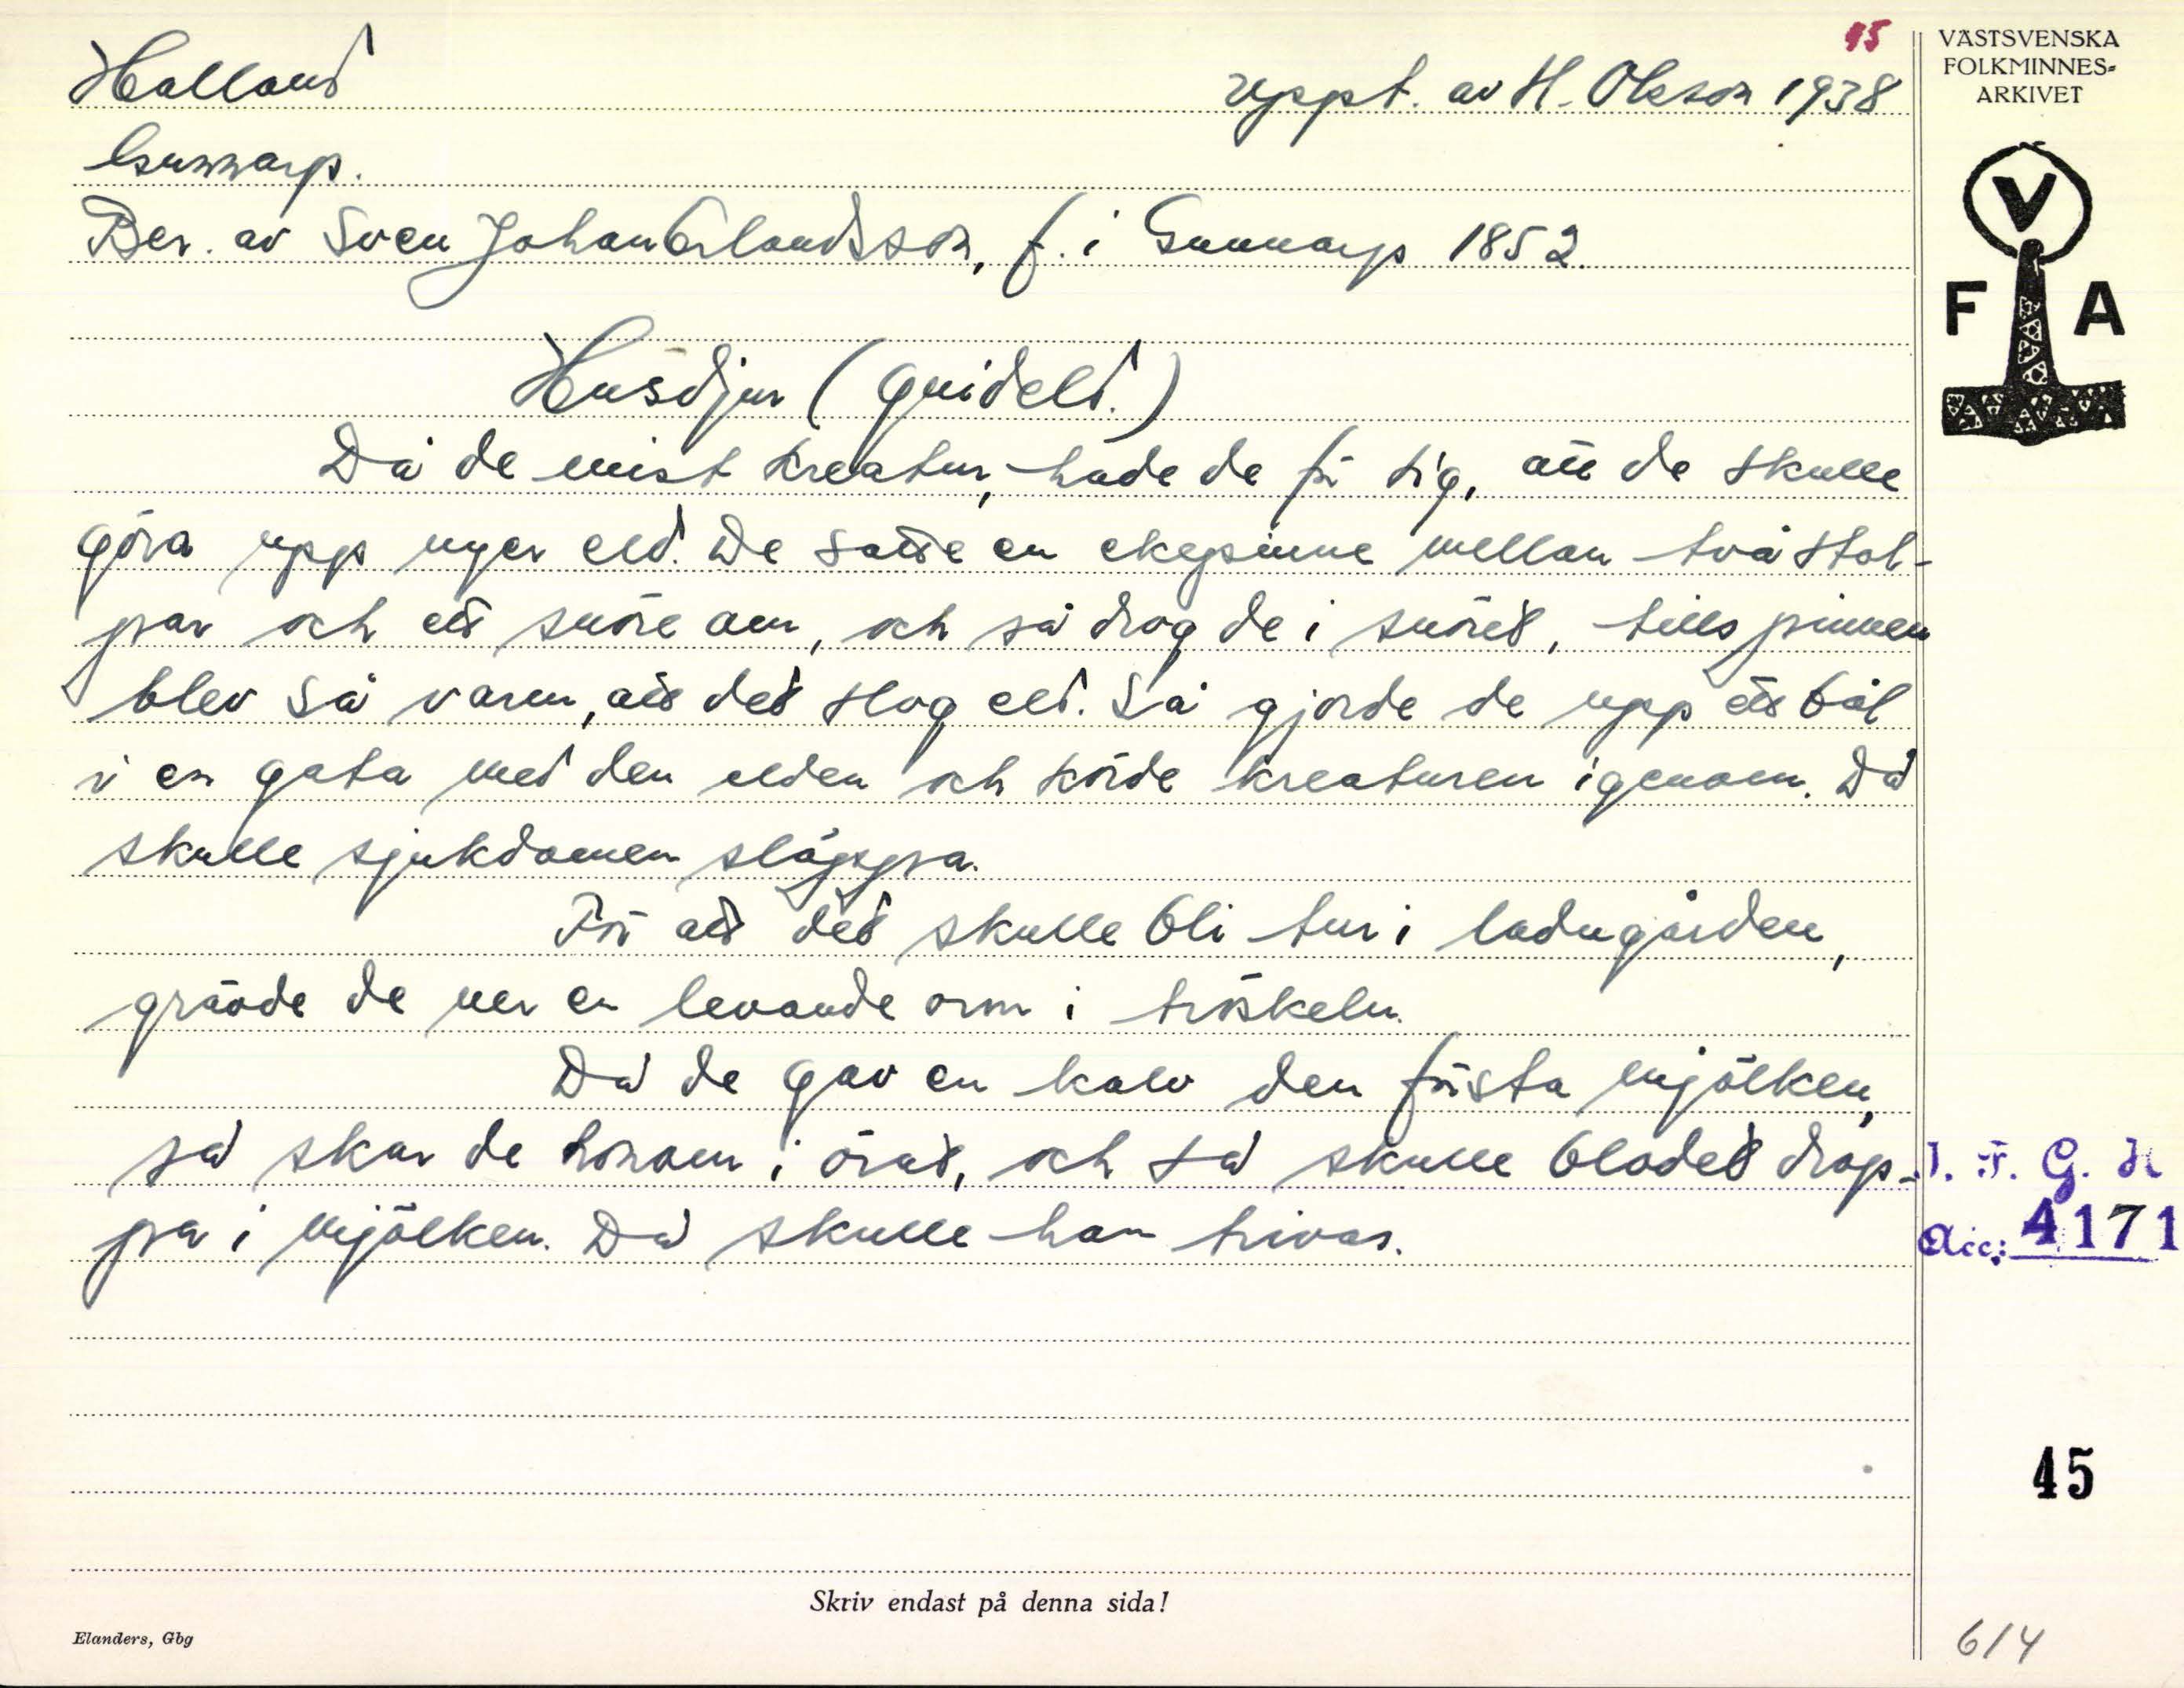 45
VÄSTSVENSKA
FOLKMINNES-
ARKIVET
Halland
uppt. av H. Olsson 1938
Gunnarp.
Ber. av Sven Johan Erlandsson, f. i Gunnarp 1852.
V
F A
Husdjur (gnideld.)
Då de mist kreatur, hade de för sig, att de skulle
göra upp nyer eld. De satte en ekepinne mellan två stol-
par och ett snöre om, och så drog de i snöret, tills pinnen
blev så varm, att det slog eld. Så gjorde de upp ett bål
i en gata med den elden och körde kreaturen igenom. Då
skulle sjukdomen släppa.
För att det skulle bli tur i ladugården,
grävde de ner en levande orm i tröskeln.
Då de gav en kalv den första mjölken,
så skar de honom i örat, och så skulle blodet drop-
pa i mjölken. Då skulle han trivas.
I. F. G. H
Acc: 4171
45
Skriv endast på denna sida!
Elanders, Gbg
614